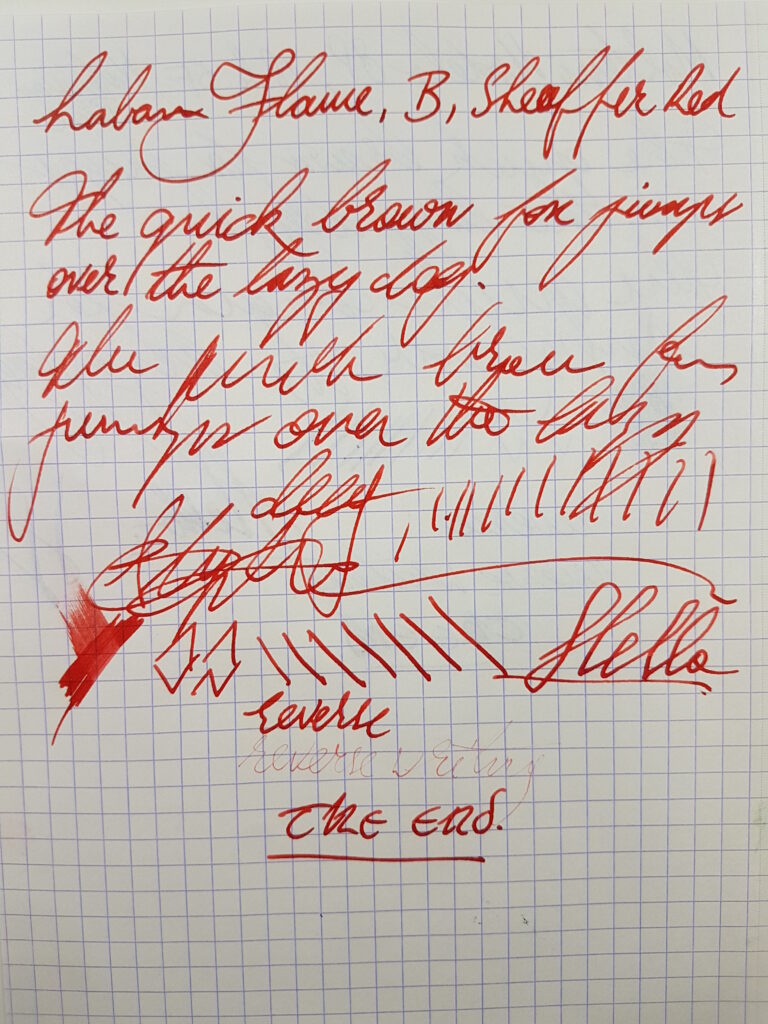 Laban Flame, B, Sheaffer Red
The quick brown fox jumps
over the lazy dog.
jumps over the lazy
Hello
reverse
reverse writing
THE END.